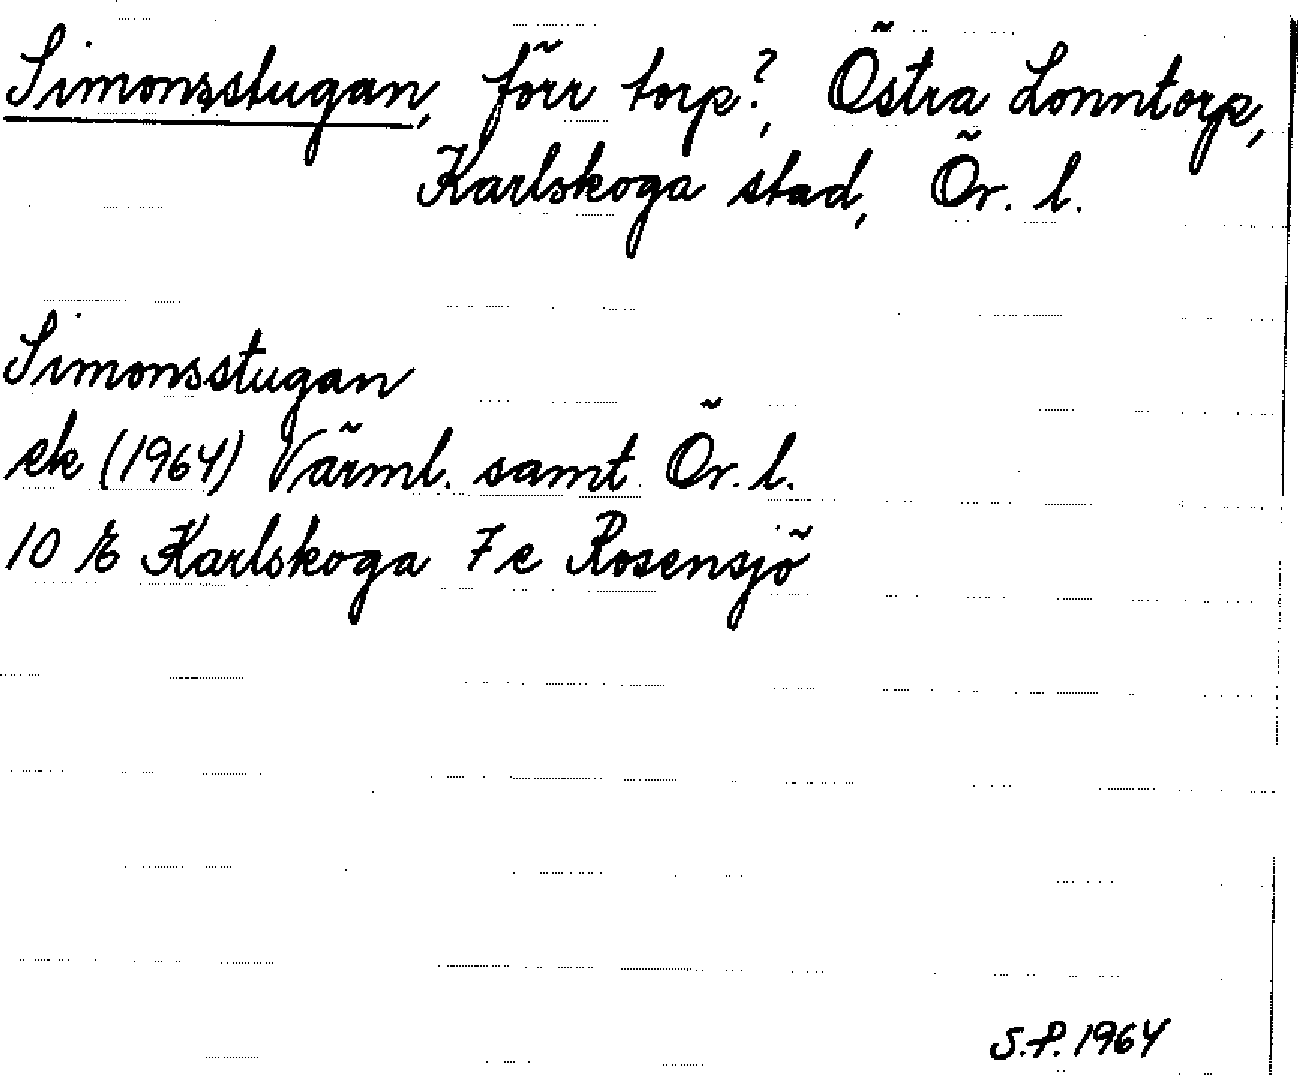 Simonsstugan, förr torp?, Östra Lonntorp,
Karlskoga stad, Ör. l.
Simonsstugan
ek (1964) Värml. samt Ör. l.
10 E Karlskoga 7e Rosensjö
S.P. 1964